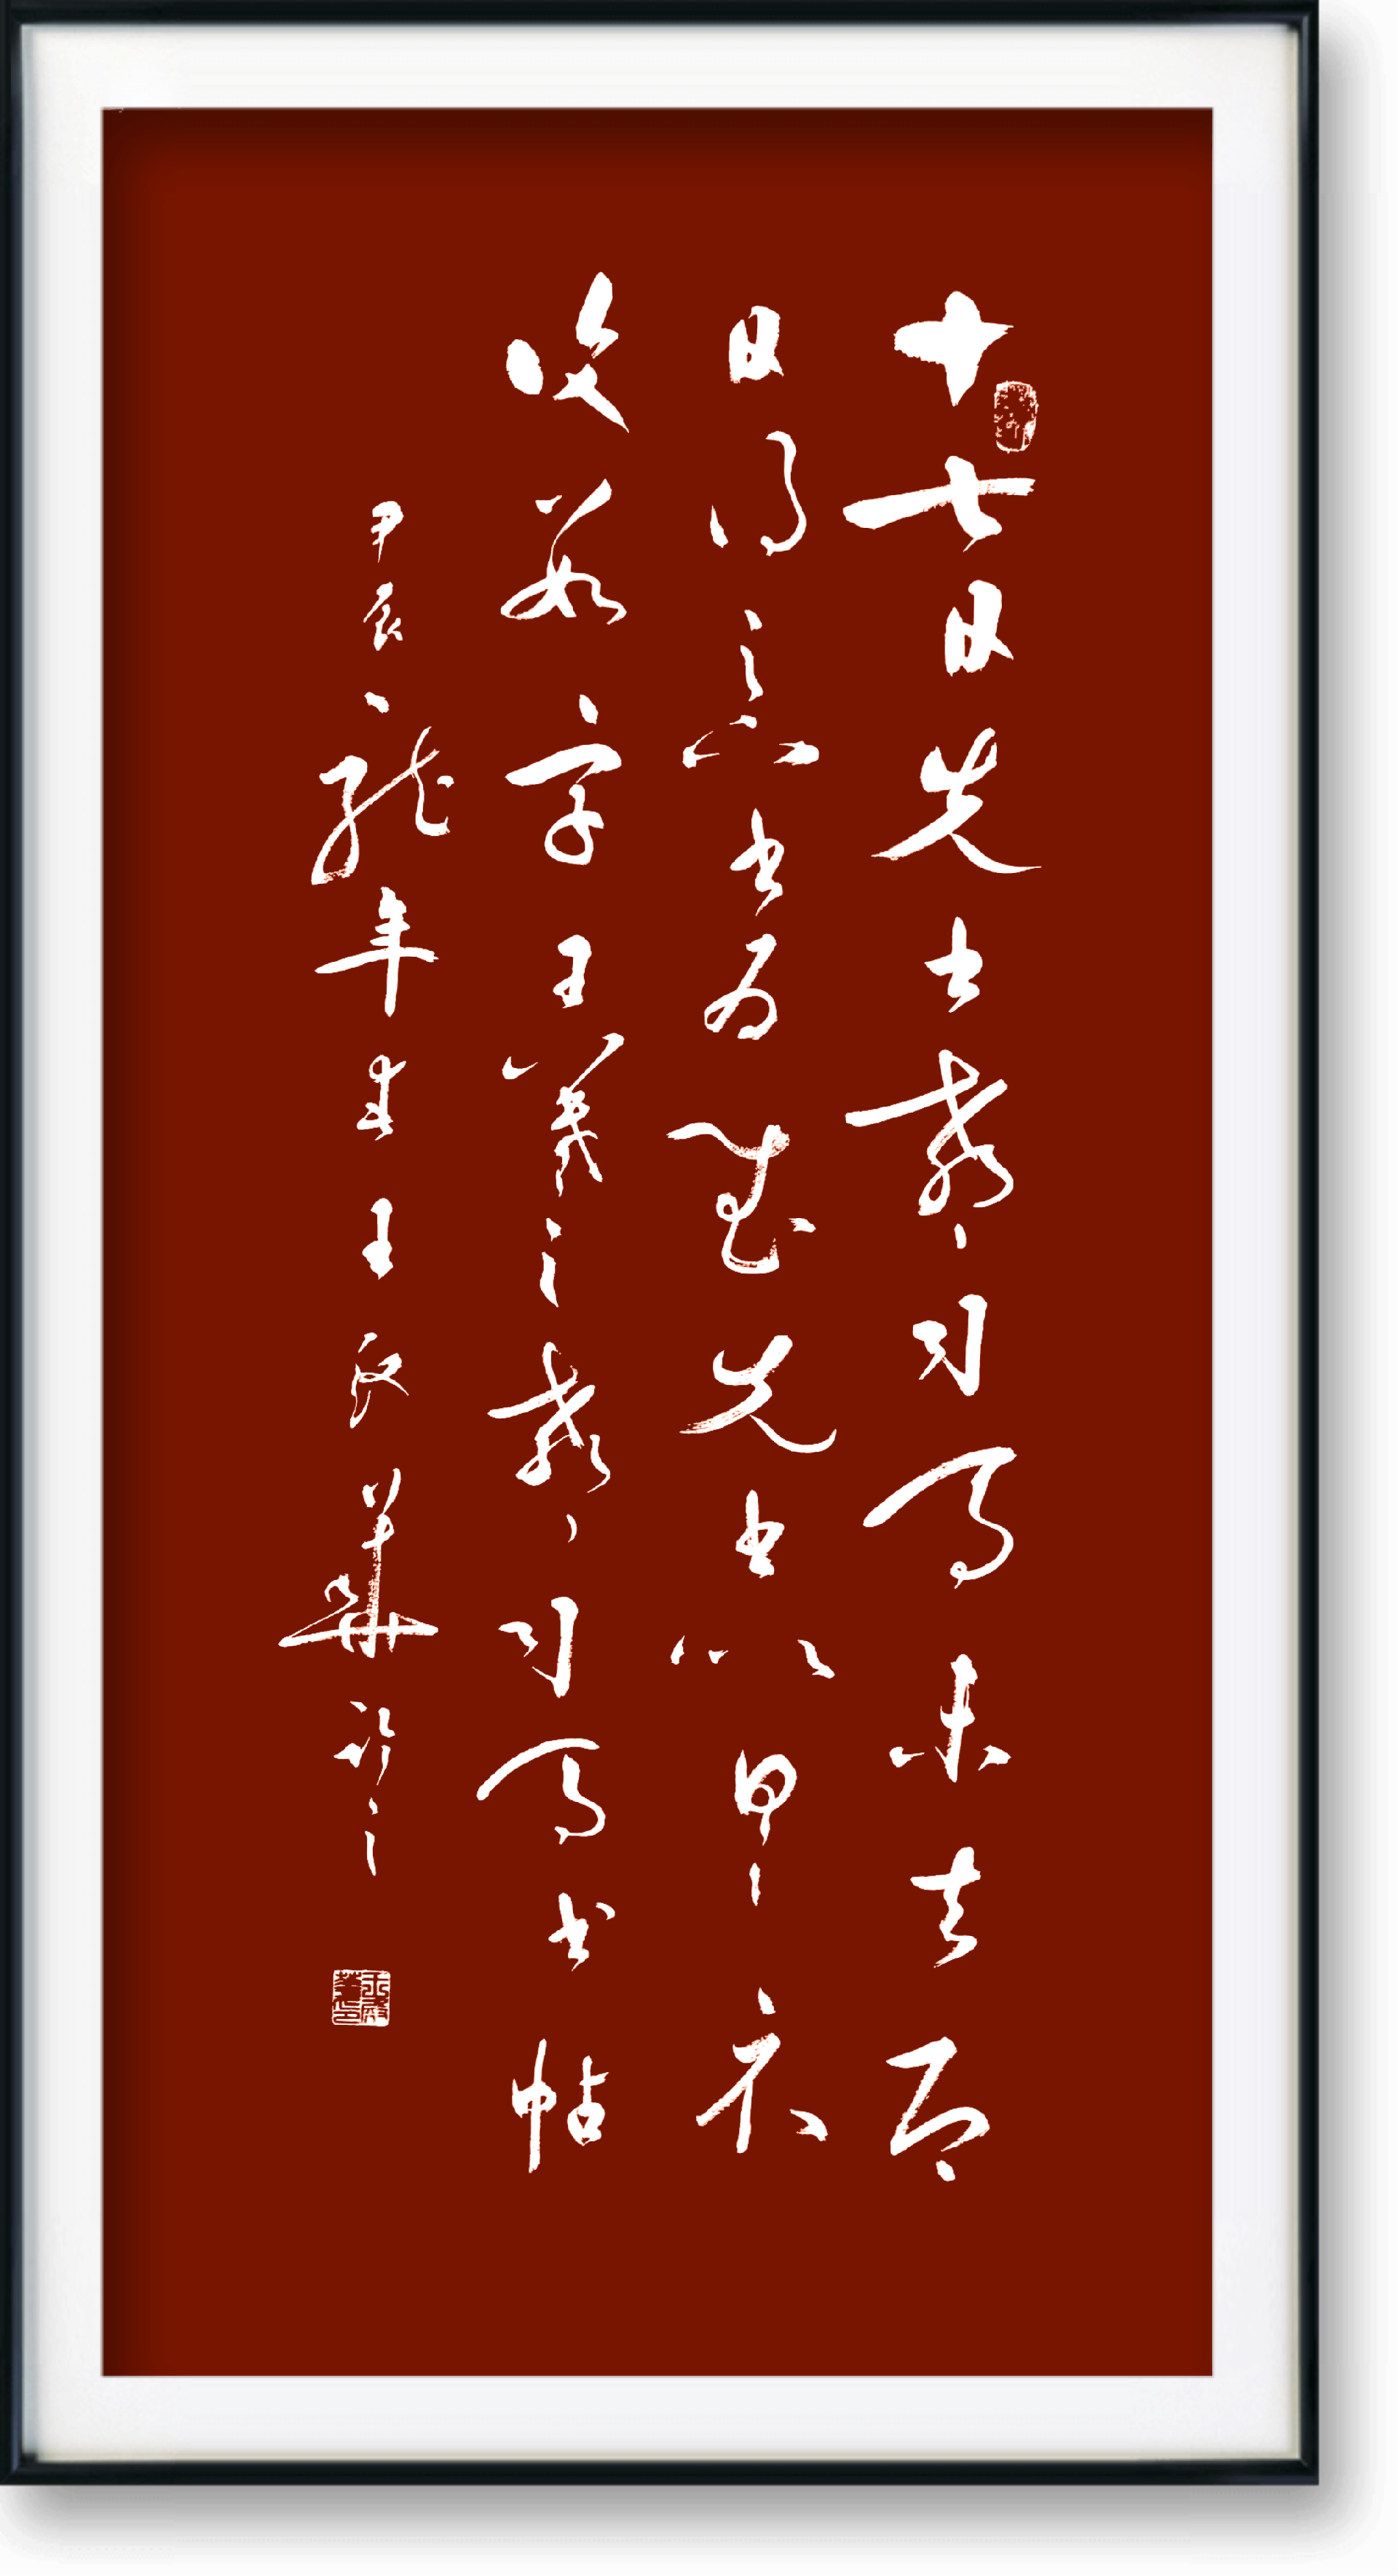 十七日先書郗司馬未去即
日得足下書為慰先書以具示
復數字王羲之郗司馬書帖
甲辰龍年王華